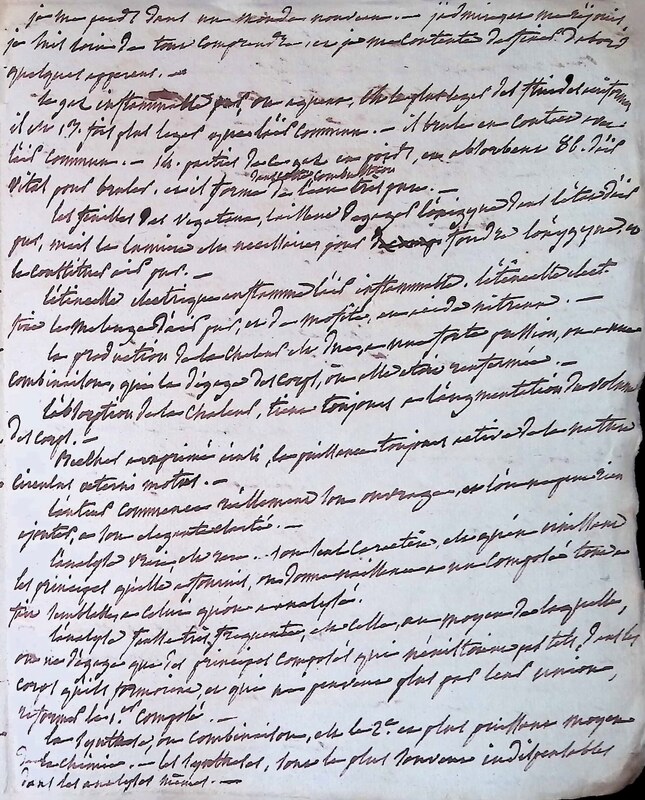 je me perds dans un monde nouveau. – j'admire, je me réjouis,
je suis loin de tout comprendre, et je me contente de saisir d'abord
quelques apperçus. –
le gaz inflammable pur, ou aqueux, est le plus leger des fluides aeriformes
il est 13. fois plus leger que l'air commun. – il brule en contact avec
l'air commun. – 14. parties de ce gaz en poids, en absorbent 86. d'air
vital pour bruler, et il forme dans cette combustion de l'eau très pure. –
les feuilles des vegetaux, laissent degager l'oxigyne dans l'état d'air
pur, mais la lumiere est necessaire pour fondre l'oxygyne et
le constituer air pur. –
l'etincelle electrique enflamme l'air inflammable. l'etincelle elect.
fixe le melange d'air pur, et de mofete, en acide nitreux. –
la production de la chaleur est due, a une forte pression, ou a une
combinaison, qui la dégage des corps, ou elle etoit renfermée. –
l'absorption de la chaleur, tient toujours a l'augmentation du volume
des corps. –
Beccher a exprimé ainsi, la puissance toujours active de la nature
circulus æterni motus. –
l'auteur commence réellement son ouvrage, et l'on ne peut rien
ajouter a son elegante clarté. –
l'analyse vraie, est rare.. son seul caractère, est qu'en unissant
les principes qu'elle a fournis, on donne naissance a un composé tout a
fait semblable a celui qu'on a analysé.
l'analyse fausse très frequente, est celle, au moyen de laquelle,
on ne dégage que des principes composés qui n'existoient pas tels dans les
corps qu'ils formoient, et qui ne peuvent plus par leur union,
reformer le 1.er composé. –
la synthese, ou combinaison, est le 2.e et plus puissant moyen
de la chimie. – les syntheses, sont le plus souvent indispensables
dans les analyses mêmes. –